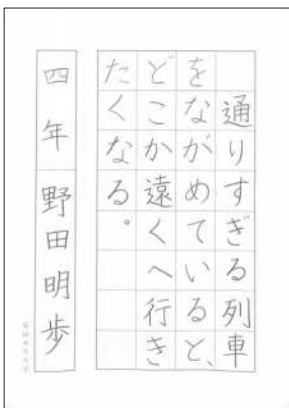 通りすぎる列車
をながめていると、
どこか遠くへ行き
たくなる。
四年 野田明歩